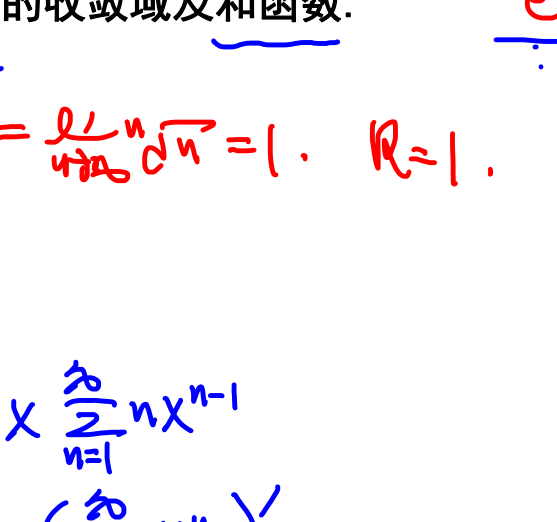 的收敛域及和函数.
= lim n→∞ ⁿ√n = 1. R = 1.
x ∑_{n=1}^{∞} n x^{n-1}
( ∞ x^n )'